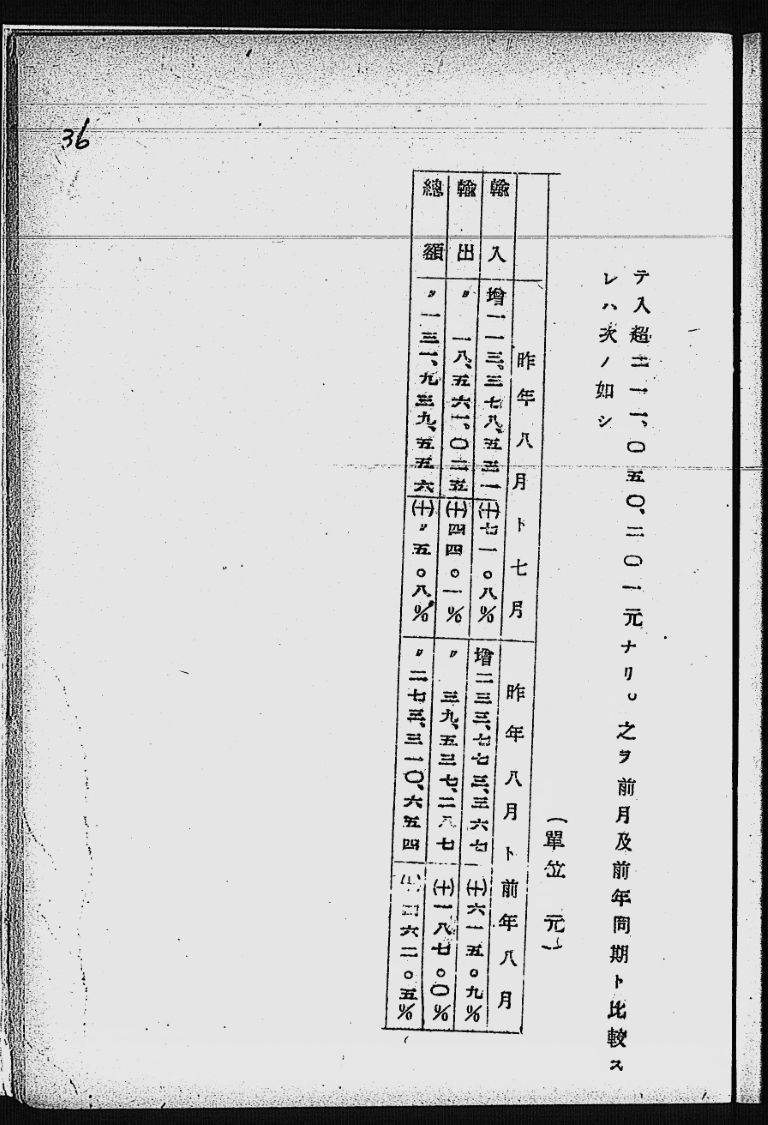 36
テ入超二一一、〇五〇、二〇一元ナリ。之ヲ前月及前年同期ト比較ス
レハ次ノ如シ
(單位 元)
昨年八月ト七月 昨年八月ト前年八月
輸入 增一一三、三七八、五三一 (十)七一。八% 增二三三、七七三、三六七 (十)六一五。九%
輸出 〃 一八、五六一、〇二五 (十)四四。一% 〃 三九、五三七、二八七 (十)一八七。〇%
總額 〃一三一、九三九、五五六 (十)六五。八% 〃二七三、三一〇、六五四 (十)四六二。五%